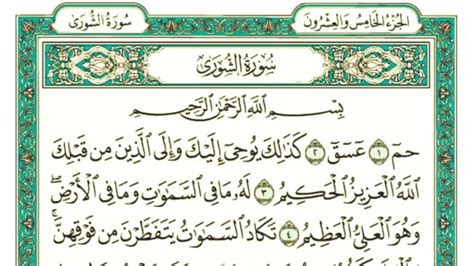 الجزء الخامس والعشرون
سورة الشورى
سُورَةُ الشُّورَى
بِسْمِ اللَّهِ الرَّحْمَٰنِ الرَّحِيمِ
حمٓ ١ عٓسٓقٓ ٢ كَذَٰلِكَ يُوحِىٓ إِلَيْكَ وَإِلَى ٱلَّذِينَ مِن قَبْلِكَ
ٱللَّهُ ٱلْعَزِيزُ ٱلْحَكِيمُ ٣ لَهُۥ مَا فِى ٱلسَّمَٰوَٰتِ وَمَا فِى ٱلْأَرْضِ ۖ
وَهُوَ ٱلْعَلِىُّ ٱلْعَظِيمُ ٤ تَكَادُ ٱلسَّمَٰوَٰتُ يَتَفَطَّرْنَ مِن فَوْقِهِنَّ ۚ